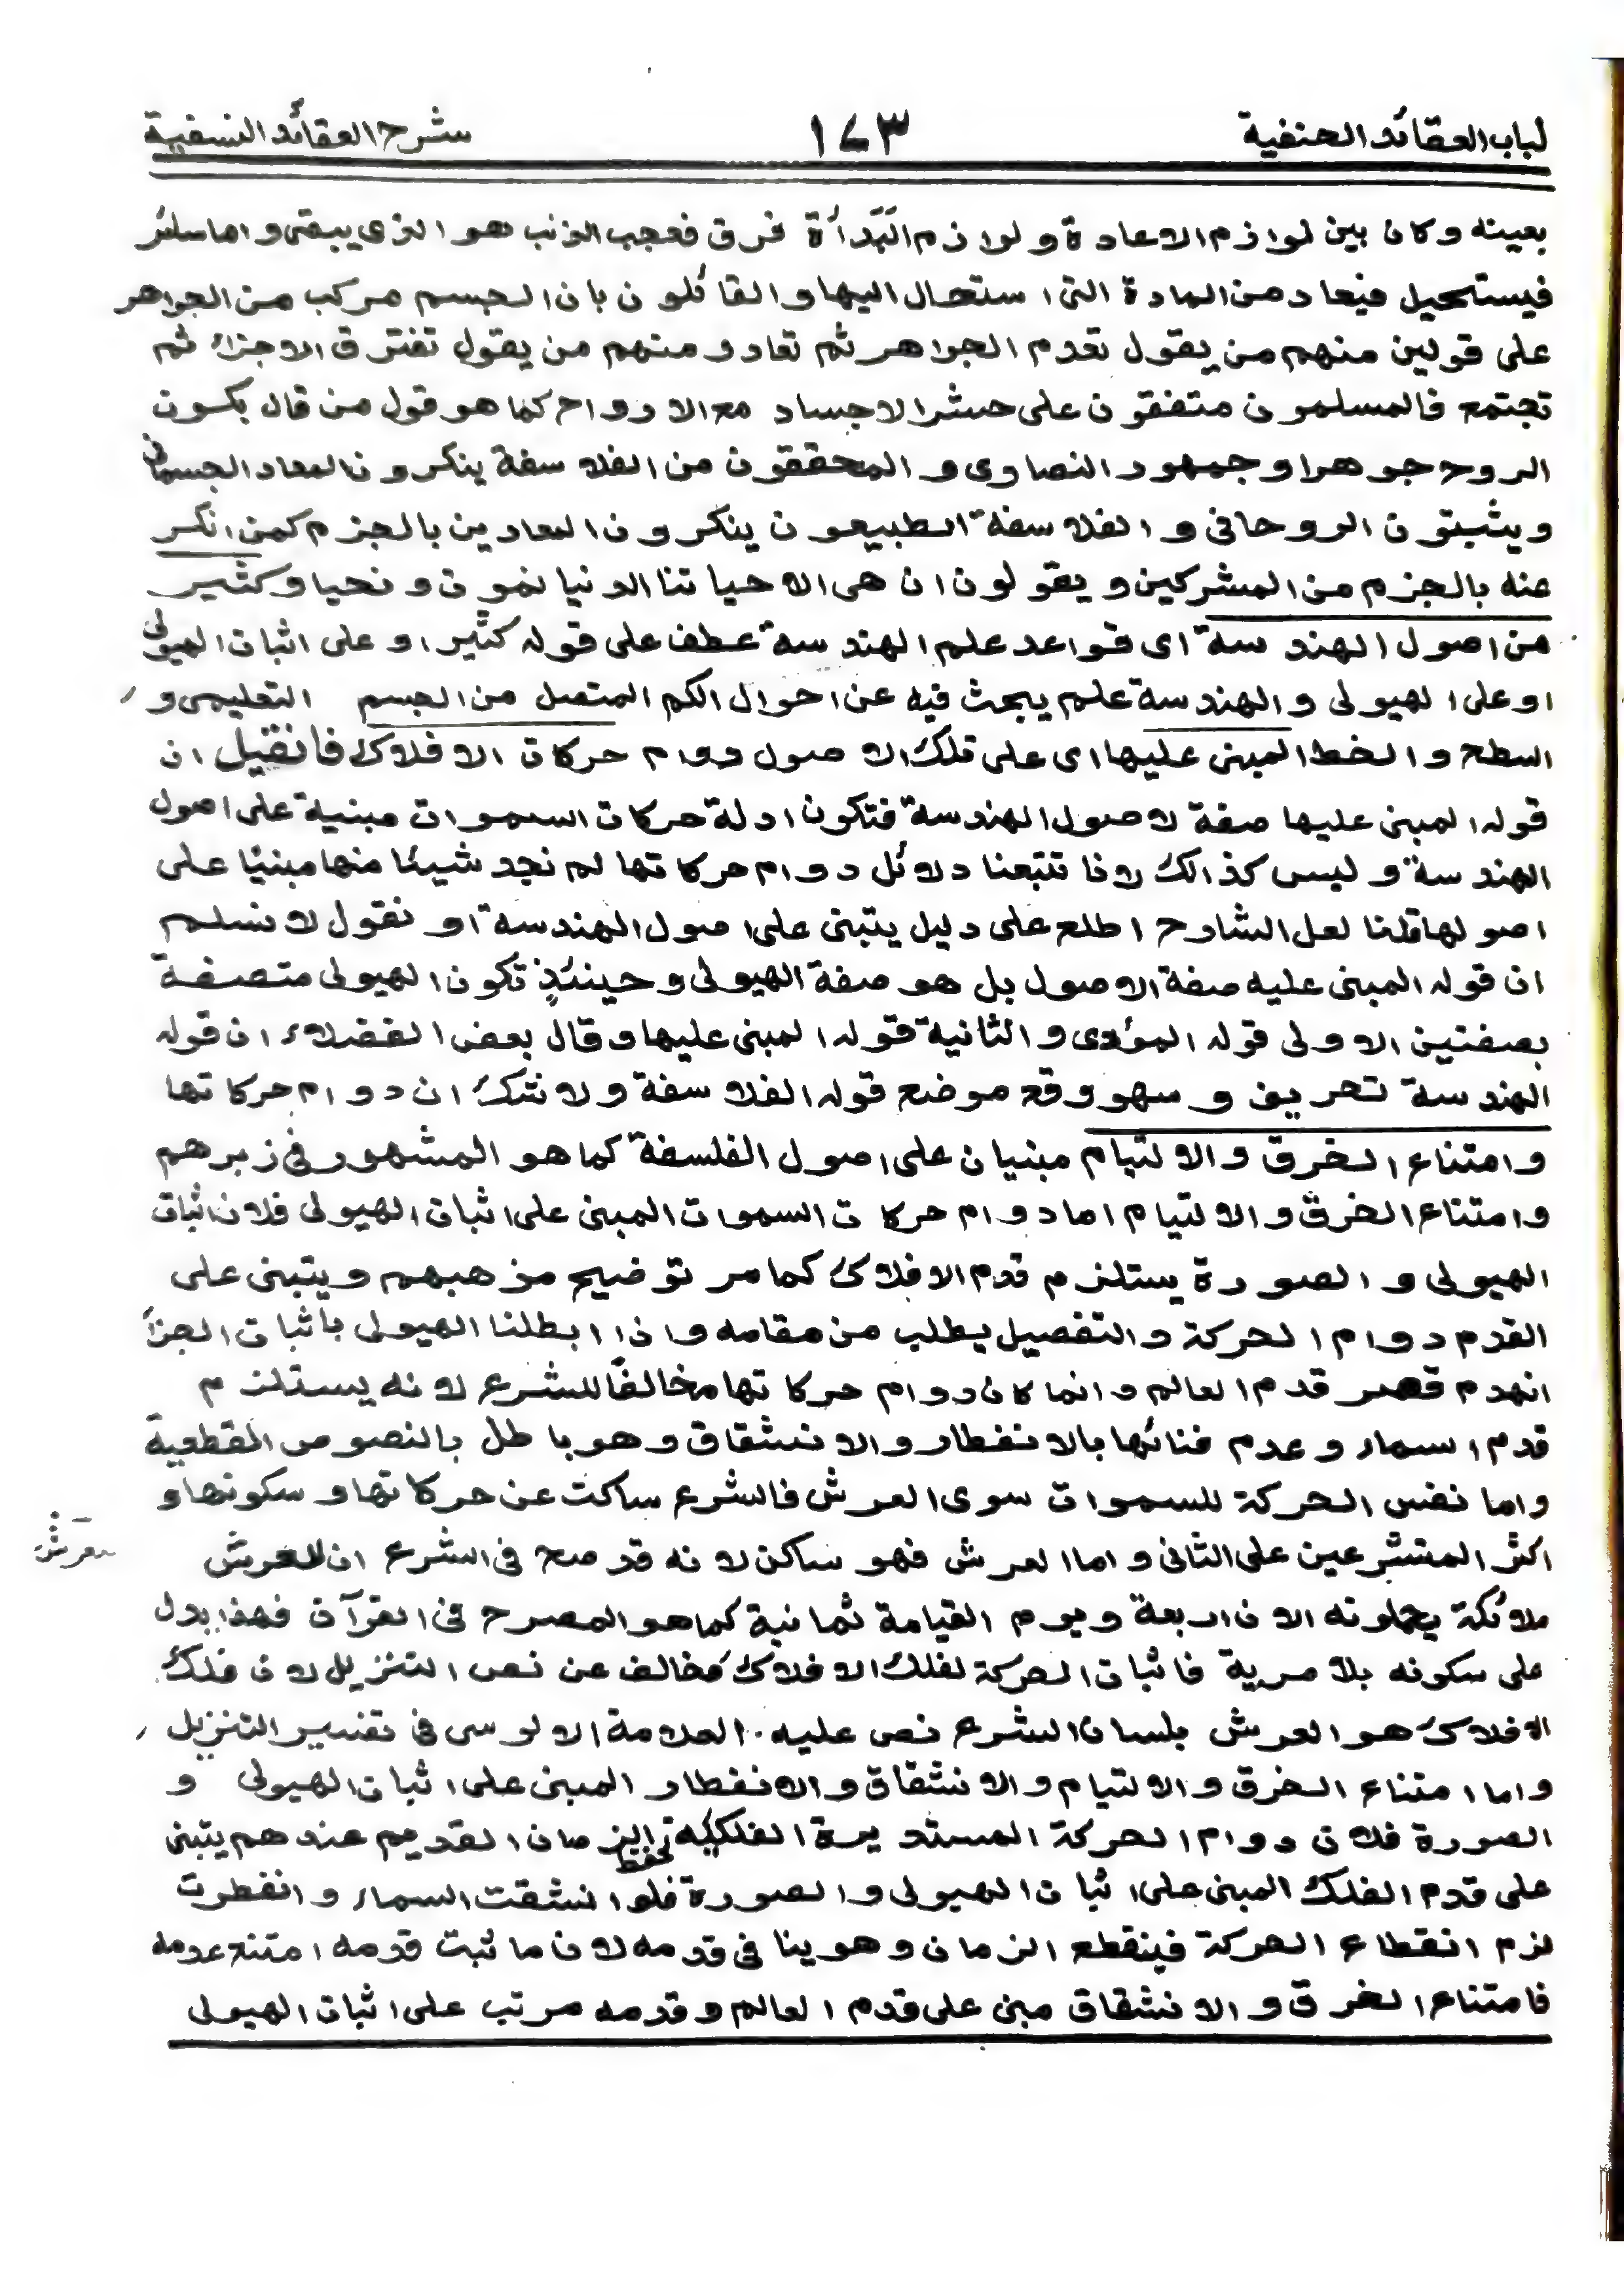 لباب العقائد الحنفية ١٤٣ شرح العقائد النسفية
بعينه وكان بين لوازم الاعادة ولوازم البَدأة فرق فعجب الذنب هو الذى يبقى واما سائر
فيستحيل فيعاد من المادة التى استحال اليها والقائلون بان الجسم مركب من الجواهر
على قولين منهم من يقول تعدم الجواهر ثم تعاد ومنهم من يقول تفترق الاجزاء ثم
تجتمع فالمسلمون متفقون على حشر الاجساد مع الارواح كما هو قول من قال بكون
الروح جوهرا وجمهور النصارى والمحققون من الفلاسفة ينكرون المعاد الجسمانى
ويثبتون الروحانى والفلاسفة الطبيعون ينكرون المعادين بالجزم كمن انكر
عنه بالجزم من المشركين ويقولون ان هى الا حياتنا الدنيا نموت ونحيا وكثير
من اصول الهندسة اى قواعد علم الهندسة عطف على قوله كثير او على اثبات الهيولى
او على الهيولى والهندسة علم يبحث فيه عن احوال الكم المتصل من الجسم التعليمى و
السطح والخط المبنى عليها اى على تلك الاصول دوام حركات الافلاك فانقيل ان
قوله المبنى عليها صفة لاصول الهندسة فتكون ادلة حركات السموات مبنية على اصول
الهندسة وليس كذالك لانا تتبعنا دلائل دوام حركاتها لم نجد شيئا منها مبنيًا على
اصولها قلنا لعل الشارح اطلع على دليل يتبنى على اصول الهندسة او نقول لا نسلم
ان قوله المبنى عليه صفة الاصول بل هو صفة الهيولى وحينئذٍ تكون الهيولى متصفة
بصفتين الاولى قوله المؤدى والثانية قوله المبنى عليها وقال بعض الفضلاء ان قوله
الهندسة تحريف وسهو وقع موضع قوله الفلاسفة ولا شك ان دوام حركاتها
وامتناع الخرق والالتيام مبنيان على اصول الفلسفة كما هو المشهور فى زبرهم
وامتناع الخرق والالتيام اما دوام حركات السموات المبنى على اثبات الهيولى فلان اثبات
الهيولى والصورة يستلزم قدم الافلاك كما مر توضيح مذهبهم ويتبنى على
القدم دوام الحركة والتفصيل يطلب من مقامه واذا ابطلنا الهيولى باثبات الجزأ
انهدم قصر قدم العالم وانما كان دوام حركاتها مخالفًا للشرع لانه يستلزم
قدم اسماء وعدم فنائها بالانفطار والانشقاق وهو باطل بالنصوص القطعية
واما نفس الحركة للسموات سوى العرش فالشرع ساكت عن حركاتها وسكونها و
اكثر المتشرعين على الثانى واما العرش فهو ساكن لانه قد صح فى الشرع ان للعرش
ملائكة يحملونه الان اربعة ويوم القيامة ثمانية كما هو المصرح فى القرآن فهذا يدل
على سكونه بلا مرية فاثبات الحركة لفلك الافلاك مخالف عن نص التنزيل لان فلك
الافلاك هو العرش بلسان الشرع نص عليه. العلامة الالوسى فى تفسير التنزيل
واما امتناع الخرق والالتيام والانشقاق والانفطار المبنى على اثبات الهيولى و
الصورة فلان دوام الحركة المستديرة الفلكيه تحفظ الزمان القديم عندهم يتبنى
على قدم الفلك المبنى على اثبات الهيولى والصورة فلو انشقت السماء وانفطرت
لزم انقطاع الحركة فينقطع الزمان وهو ينافى قدمه لان ما ثبت قدمه امتنع عدمه
فامتناع الخرق والانشقاق مبنى على قدم العالم وقدمه مرتب على اثبات الهيولى